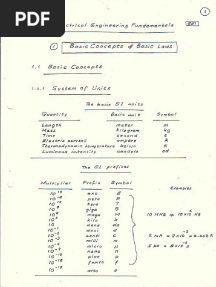 PDF
1
Electrical Engineering Fundamentals
① Basic Concepts & Basic Laws
1.1 Basic Concepts
1.1.1 System of Units
The basic SI units
Quantity Basic unit Symbol
Length meter m
Mass kilogram kg
Time second s
Electric current ampere A
Thermodynamic temperature kelvin K
Luminous intensity candela cd
The SI prefixes
Multiplier Prefix Symbol
Examples
10¹² tera T
10⁹ giga G
10⁶ mega M
10³ kilo k
10⁻¹ deci d
10⁻² centi c
10⁻³ milli m
10⁻⁶ micro μ
10⁻⁹ nano n
10⁻¹² pico p
10⁻¹⁵ femto f
10⁻¹⁸ atto a